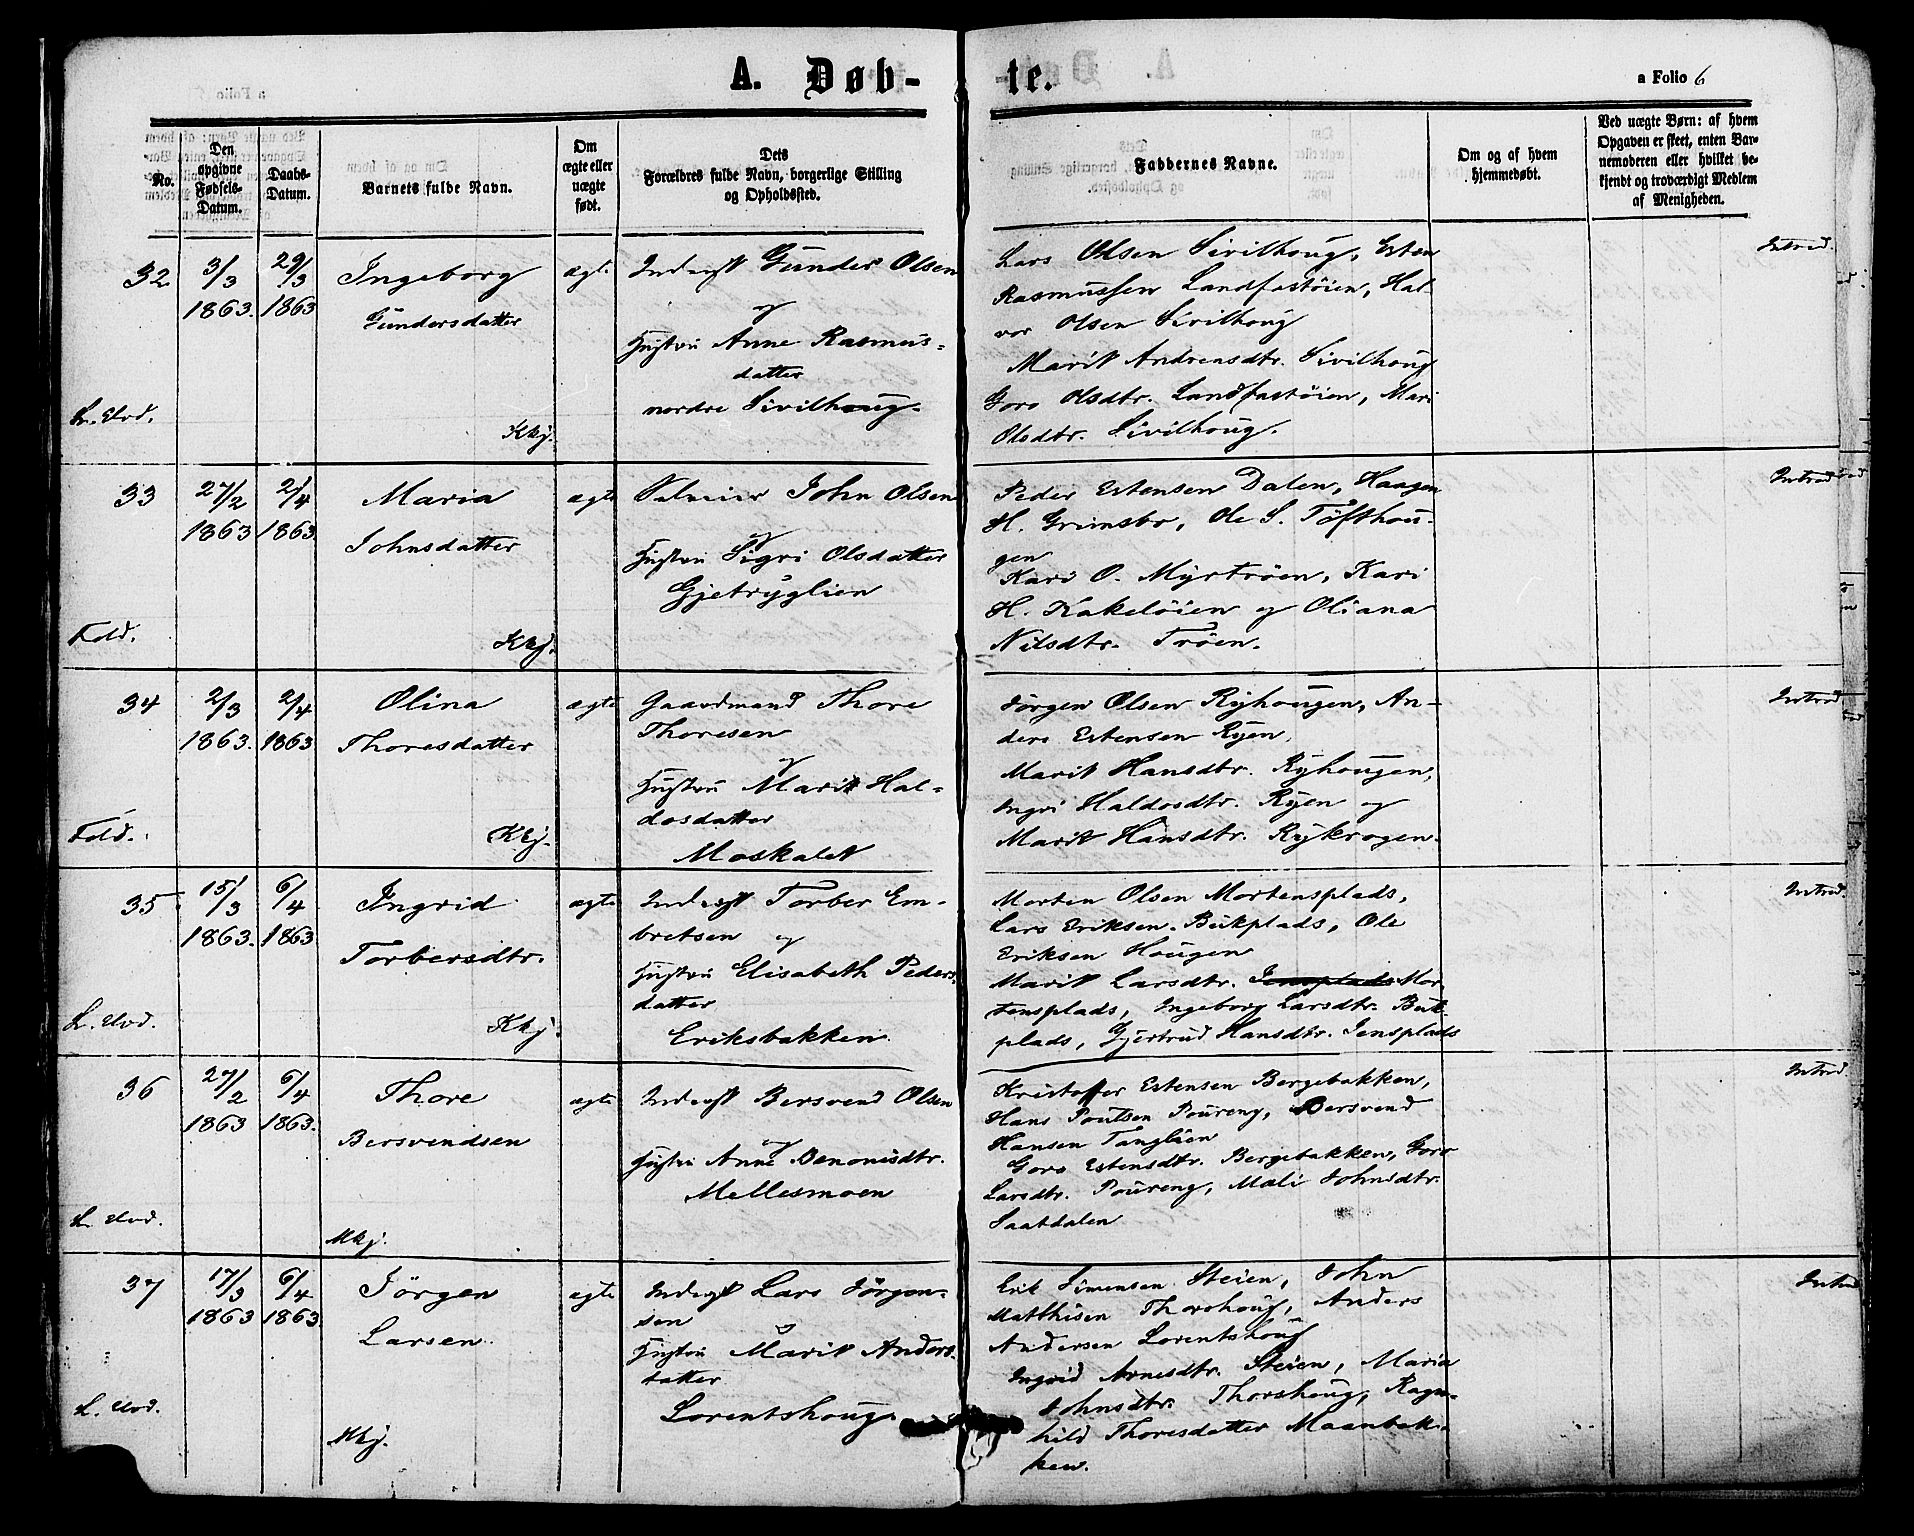 A. Døb-
te.
a Folio 6
No.
Den opgivne Fødsels-Datum.
Daabs-Datum.
Barnets fulde Navn.
Om ægte eller uægte født.
Dets Forældres fulde Navn, borgerlige Stilling og Opholdssted.
Faddernes Navne.
Om og af hvem hjemmedøbt.
Ved uægte Børn: af hvem Opgaven er skeet, enten Barnemoderen eller hvilket bekjendt og troværdigt Medlem af Menigheden.
32.
3/3
1863.
29/3
1863
Ingeborg
Gundersdatter
ægte
Inderst Gunder Olsen
og
Hustru Anne Rasmus-
datter
nordre Sivilhoug.
L. Elvd.
Kkj.
Lars Olsen Sivilhoug, Esten
Rasmussen Landfastøien, Hal-
vor Olsen Sivilhoug
Marit Andreasdtr. Sivilhoug
Goro Olsdtr. Landfastøien, Mari
Olsdtr. Sivilhoug.
Introd.
33
27/2
1863
2/4
1863.
Maria
Johnsdatter
ægte
John Olsen
og
Hustru Sigri Olsdatter
Gjetryglien
Fold.
Kkj.
Peder Estensen Dalen, Haagen
H. Grimsbo, Ole S. Tøfthou-
gen
Kari O. Myrtrøen, Kari
H. Kakeløien og Oliana
Nilsdtr. Trøen.
Introd
34
2/3
1863.
2/4
1863
Olina
Thoresdatter
ægte
Gaardmand Thore
Thoresen
og
Hustru Marit Hal-
dosdatter
Moskalet
Fold.
Kkj.
Jørgen Olsen Ryhougen, An-
ders Estensen Ryen,
Marit Hansdtr. Ryhougen,
Ingri Haldosdtr. Ryen og
Marit Hansdtr. Rykrogen.
Introd
35
15/3
1863.
6/4
1863
Ingrid
Torbersdtr.
ægte
Inderst Torber Em-
bretsen og
Hustru Elisabeth Peders-
datter
Eriksbakken.
L. Elvd.
Kkj.
Morten Olsen Mortensplads,
Lars Eriksen Bukplads, Ole
Eriksen Hougen
Marit Larsdtr. Jensplads Mor-
tensplads, Ingeborg Larsdtr. Buk-
plads, Gjertrud Hansdtr. Jensplads
Introd.
36
27/2
1863
6/4
1863.
Thore
Bersvendsen
ægte
Inderst Bersvend Olsen
og
Hustru Anne Benonisdtr.
Mellesmoen
L. Elvd.
Hkj.
Kristoffer Estensen Bergebakken,
Hans Poulsen Poureng, Bersvend
Hansen Tangløen
Goro Estensdtr. Bergebakken, Goro
Larsdtr. Poureng, Mali Johnsdtr.
Saatdalen
Introd.
37
17/3
1863
6/4
1863
Jørgen
Larsen
ægte
Inderst Lars Jørgen-
sen
og
Hustru Marit Anders-
datter
Lorentshoug
L. Elvd.
Hkj.
Erik Simensen Steien, John
Matthisen Thorshoug, Anders
Andersen Lorentshoug
Ingrid Arnesdtr. Steien, Maria
Johnsdtr. Thorshoug, Ragn-
hild Thoresdatter Maanbak-
ken.
Introd